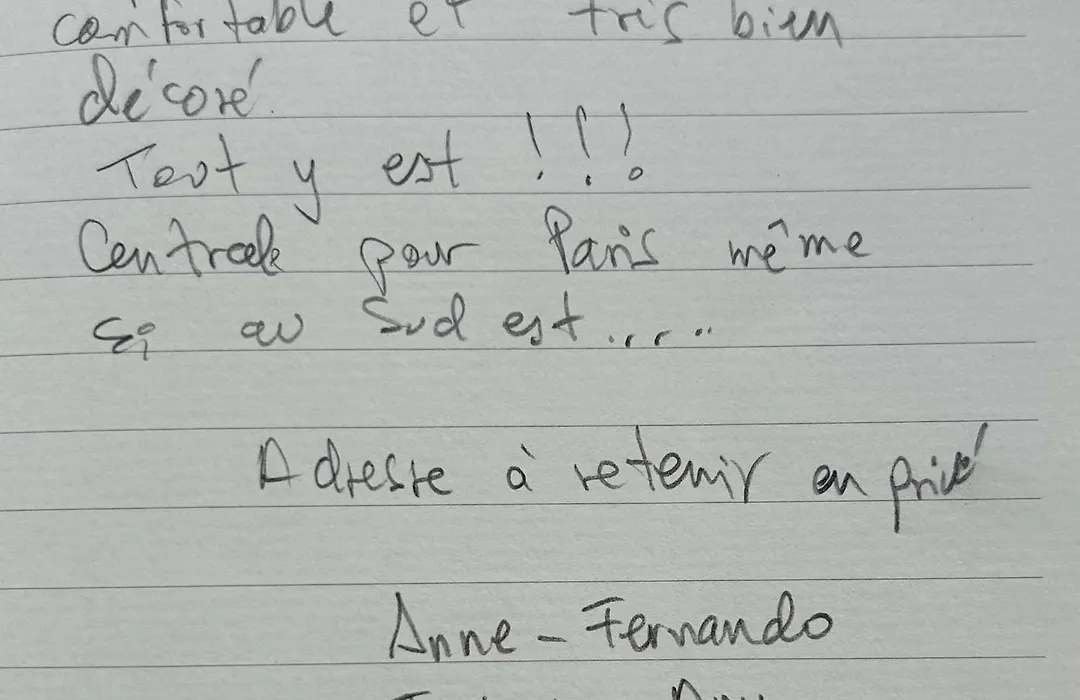 confortable et très bien
décoré.
Tout y est !!!
Centrale pour Paris même
si au Sud est.....
Adresse à retenir en privé
Anne - Fernando